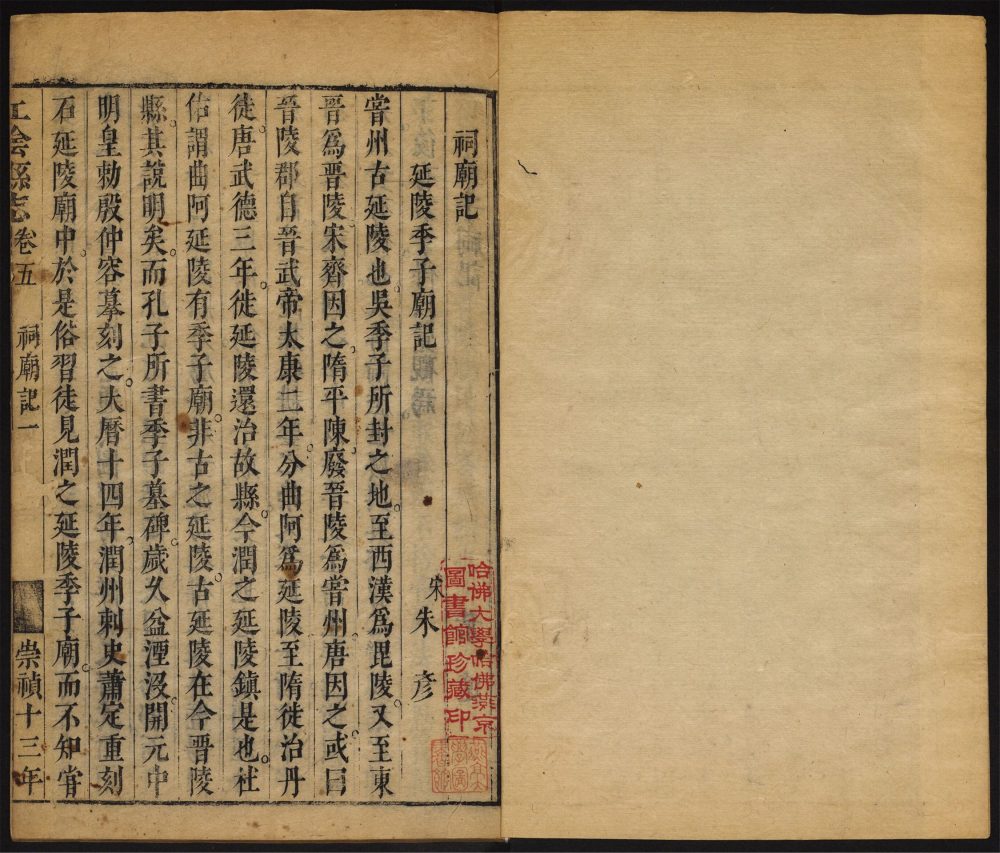 祠廟記
延陵季子廟記
宋 朱彥
甞州古延陵也吳季子所封之地至西漢爲毘陵又至東
晉爲晉陵宋齊因之隋平陳廢晉陵爲甞州唐因之或曰
晉陵郡自晉武帝太康二年分曲阿爲延陵至隋徙治丹
徒唐武德三年徙延陵還治故縣今潤之延陵鎮是也杜
佑謂曲阿延陵有季子廟非古之延陵古延陵在今晉陵
縣其說明矣而孔子所書季子墓碑歲久盆湮沒開元中
明皇勅殷仲容摹刻之大曆十四年潤州刺史蕭定重刻
石延陵廟中於是俗習徒見潤之延陵季子廟而不知甞
江陰縣志 卷五 祠廟記一 崇禎十三年
哈佛大學哈佛燕京
圖書館珍藏印